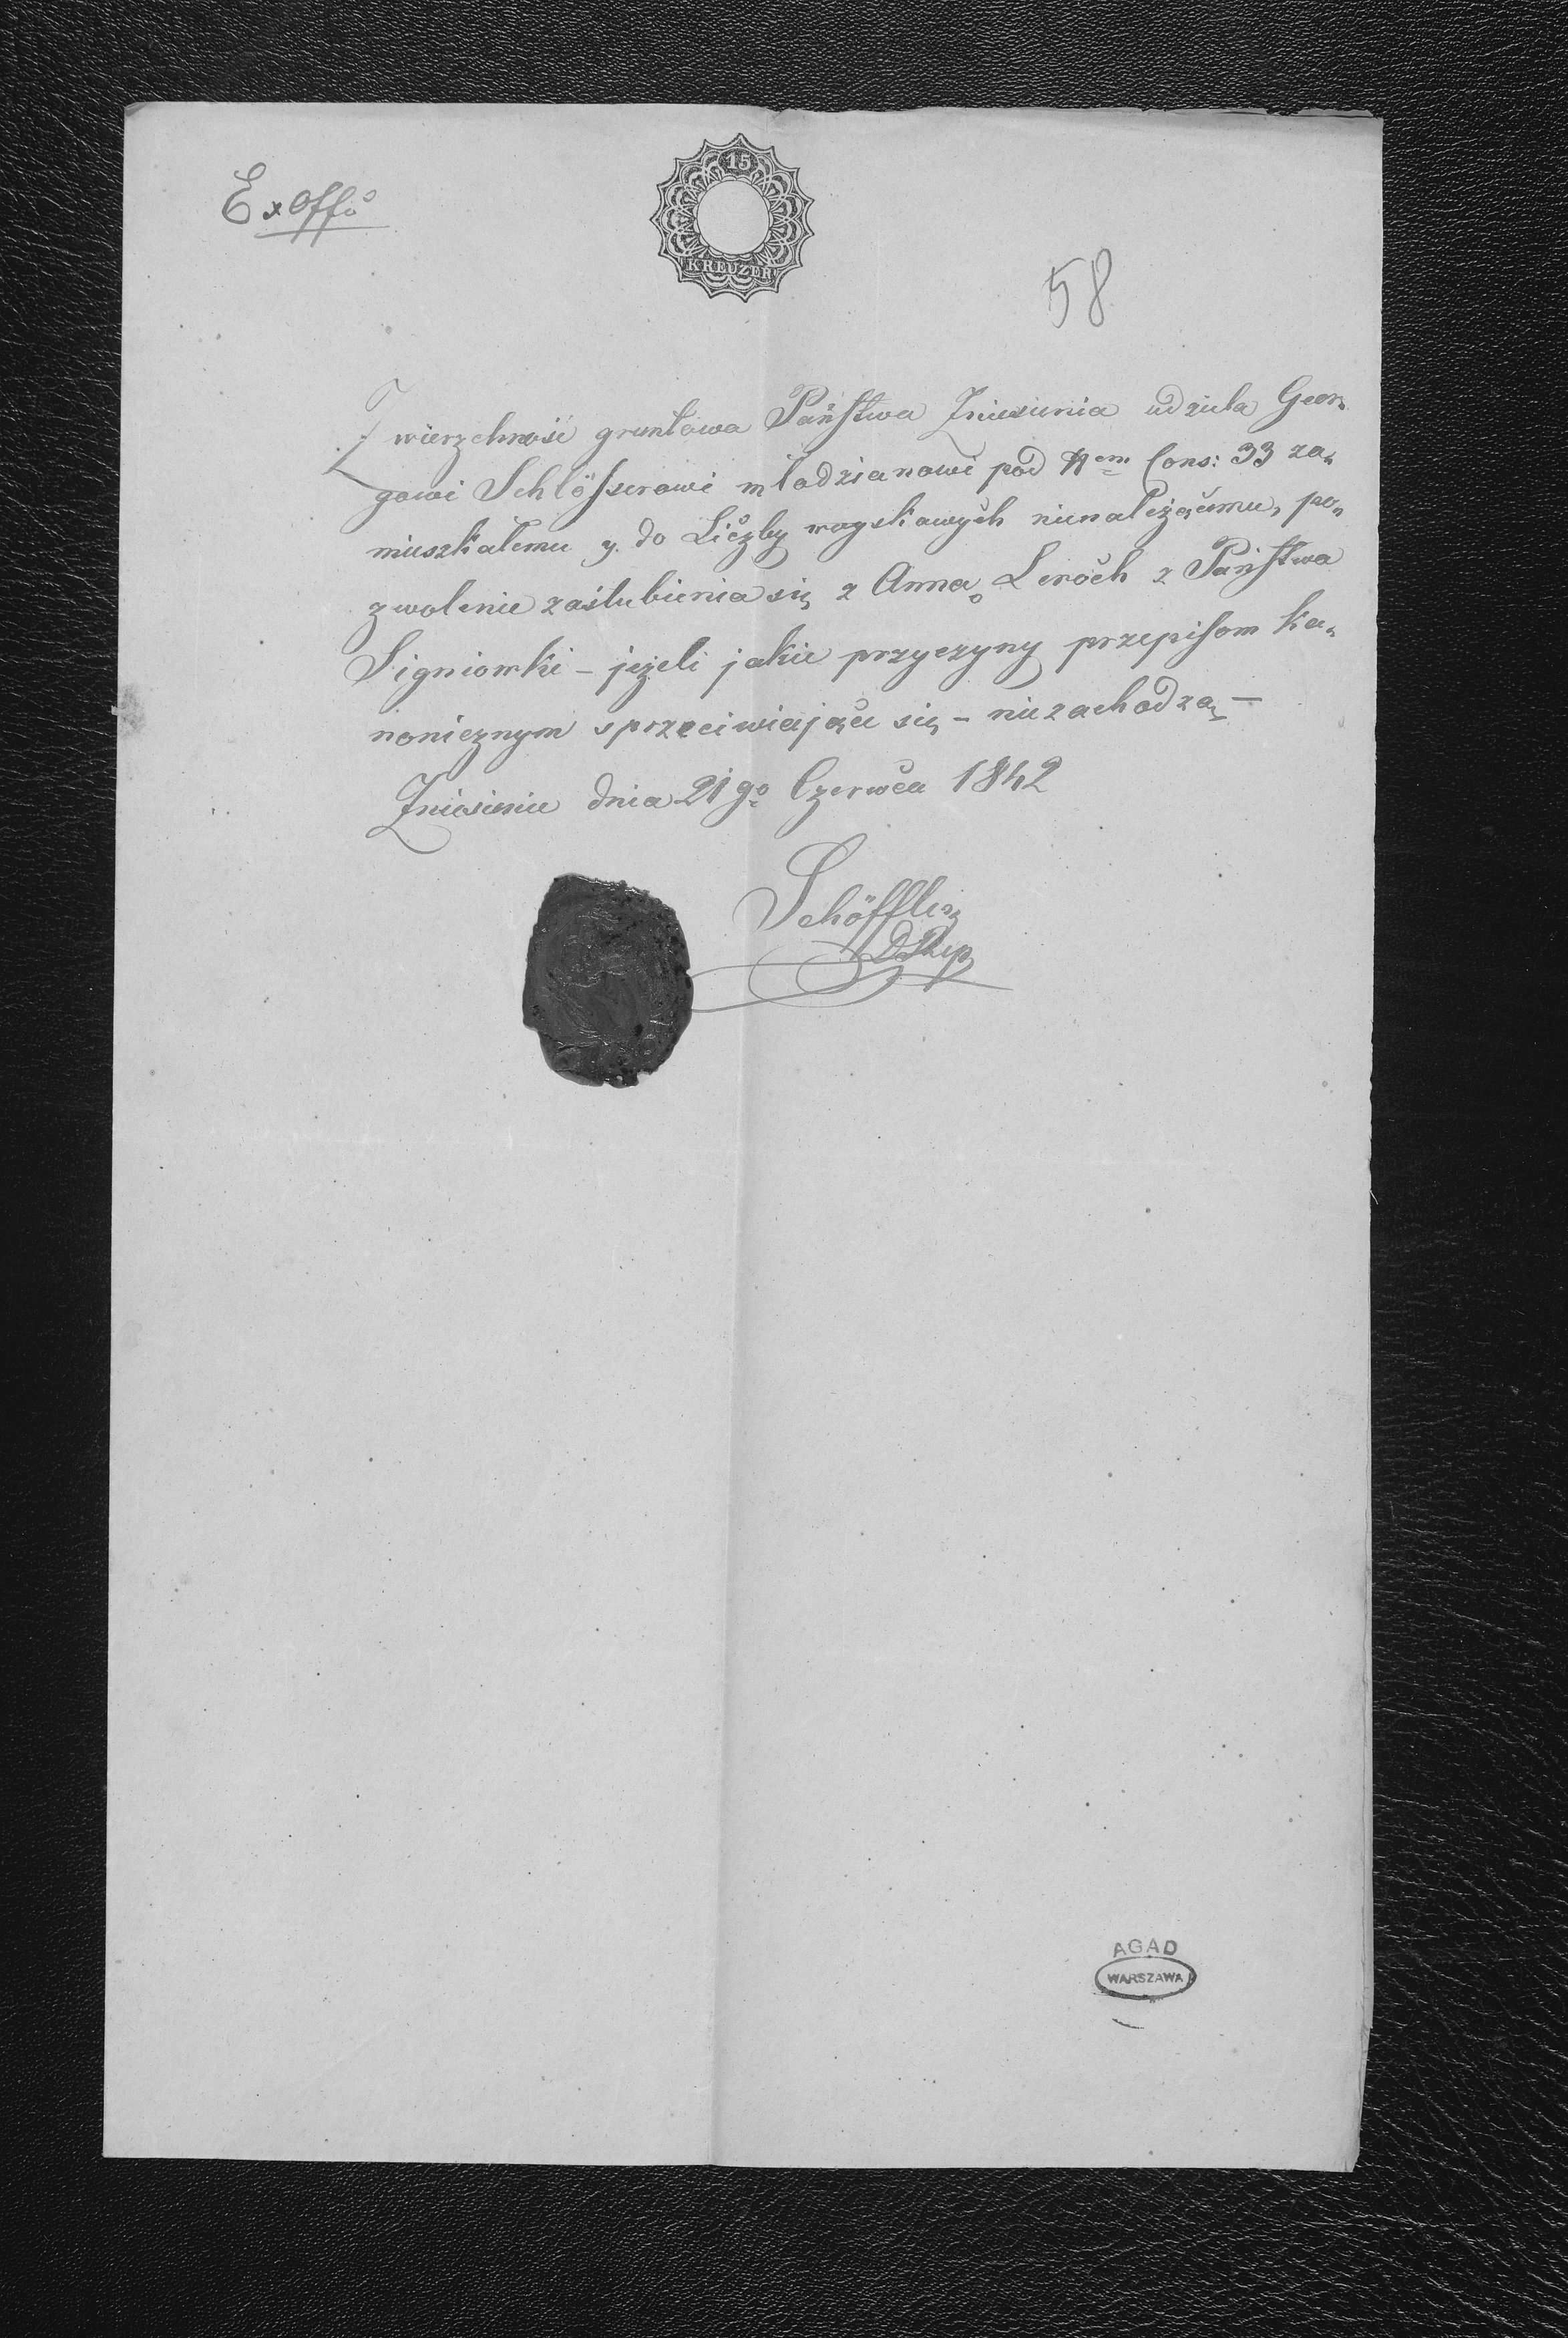 Ex Offo
15
KREUZER
58
Zwierzchność gruntowa Państwa Zniesienia udziela Geor„
gowi Schlösserowi młodzianowi pod Nem Cons: 33 za„
mieszkałemu y. do Liczby woyskowych nienależącemu, po„
zwolenie zaślubienia się z Anną Leroch z Państwa
Signiowki – jeżeli jakie przyczyny przepisom ka„
nonicznym sprzeciwiające się – nie zachodzą –
Zniesienie dnia 21go Czerwca 1842
Schöffler
AGAD
WARSZAWA